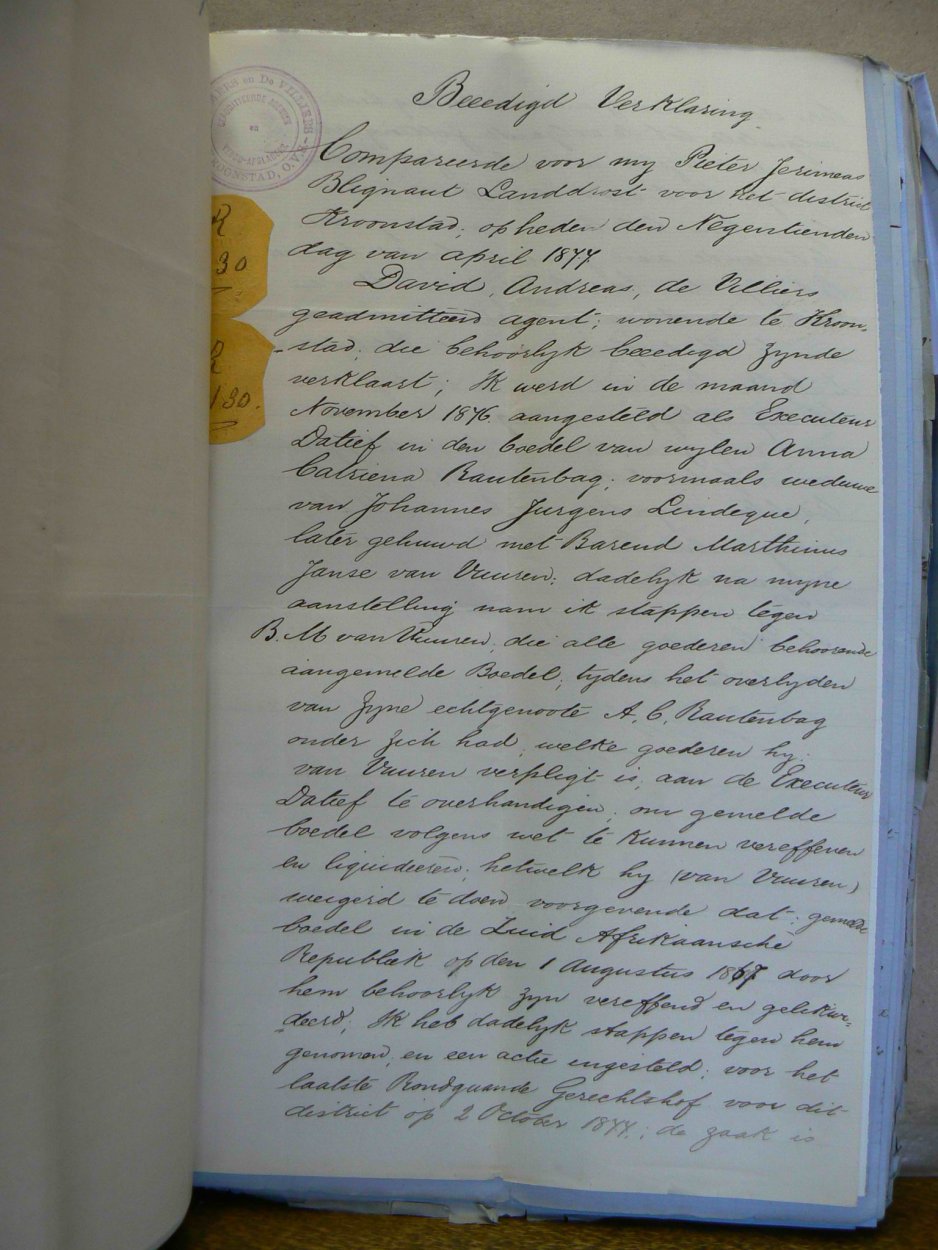 Beeedigd Verklaring
ERS en De VILLIERS
GEADMITTEERDE AGENTEN
en
VENDU-AFSLAGERS
KROONSTAD, O.V.S.
R
30
R
130.
Compareerde voor my Pieter Jerimeas
Blignaut Landdrost voor het district
Kroonstad, op heden den Negentienden
dag van april 1877
David, Andreas, de Villiers
geadmitteerd agent; wonende te Kroon-
-stad, die behoorlyk beeedigd zynde
verklaart; Ik werd in de maand
November 1876 aangesteld als Executeur
Datief in den boedel van wylen Anna
Catriena Rautenbag, voormaals weduwe
van Johannes Jurgens Lindeque,
later gehuwd met Barend Marthinus
Janse van Vuuren; dadelyk na myne
aanstelling nam ik stappen tegen
B. M van Vuuren, die alle goederen behoorende
aangemelde Boedel, tydens het overlyden
van zyne echtgenoote A, C, Rautenbag
onder zich had, welke goederen hy,
van Vuuren verpligt is, aan de Executeur
Datief te overhandigen, om gemelde
boedel volgens wet te kunnen vereffenen
en liquideeren, hetwelk hy (van Vuuren)
weigerd te doen voorgevende dat: gemelde
boedel in de Zuid Afrikaansche
Republiek op den 1 Augustus 1867 door
hem behoorlyk zyn vereffend en gelikwi-
deerd, Ik heb dadelyk stappen tegen hem
genomen, en een actie ingesteld, voor het
laatste Rondgaande Gerechtshof voor dit
district op 2 October 1877; de zaak is